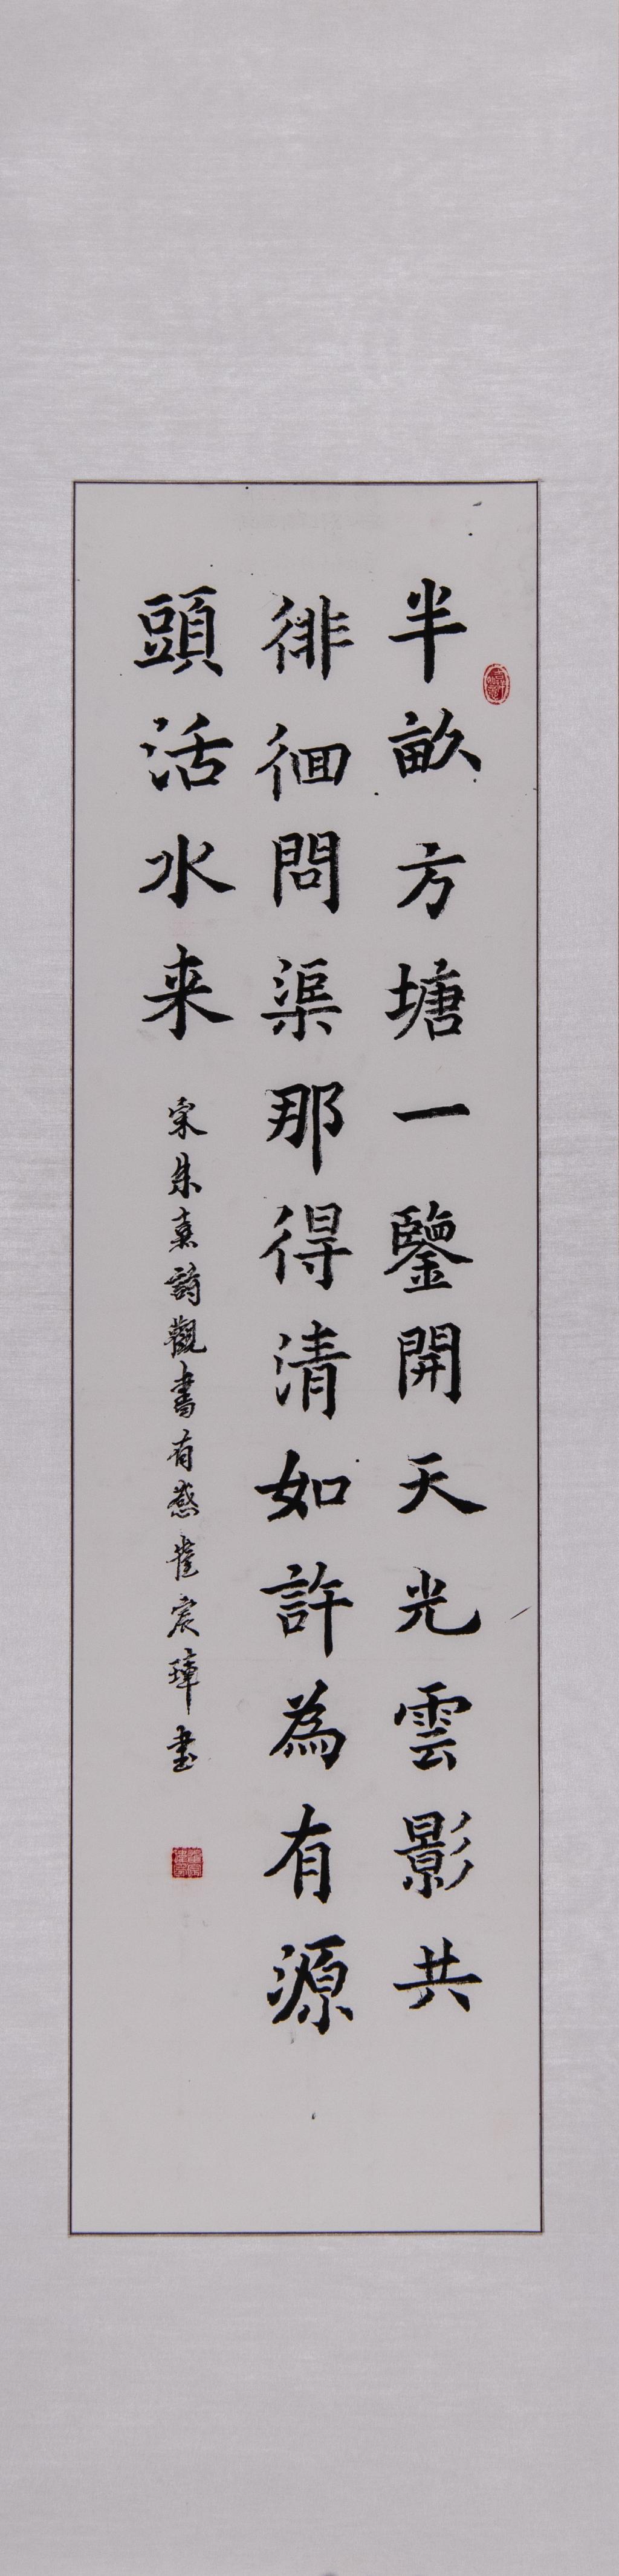 半畝方塘一鑒開天光雲影共
徘徊問渠那得清如許為有源
頭活水来
宋朱熹詩觀書有感崔宸璋書